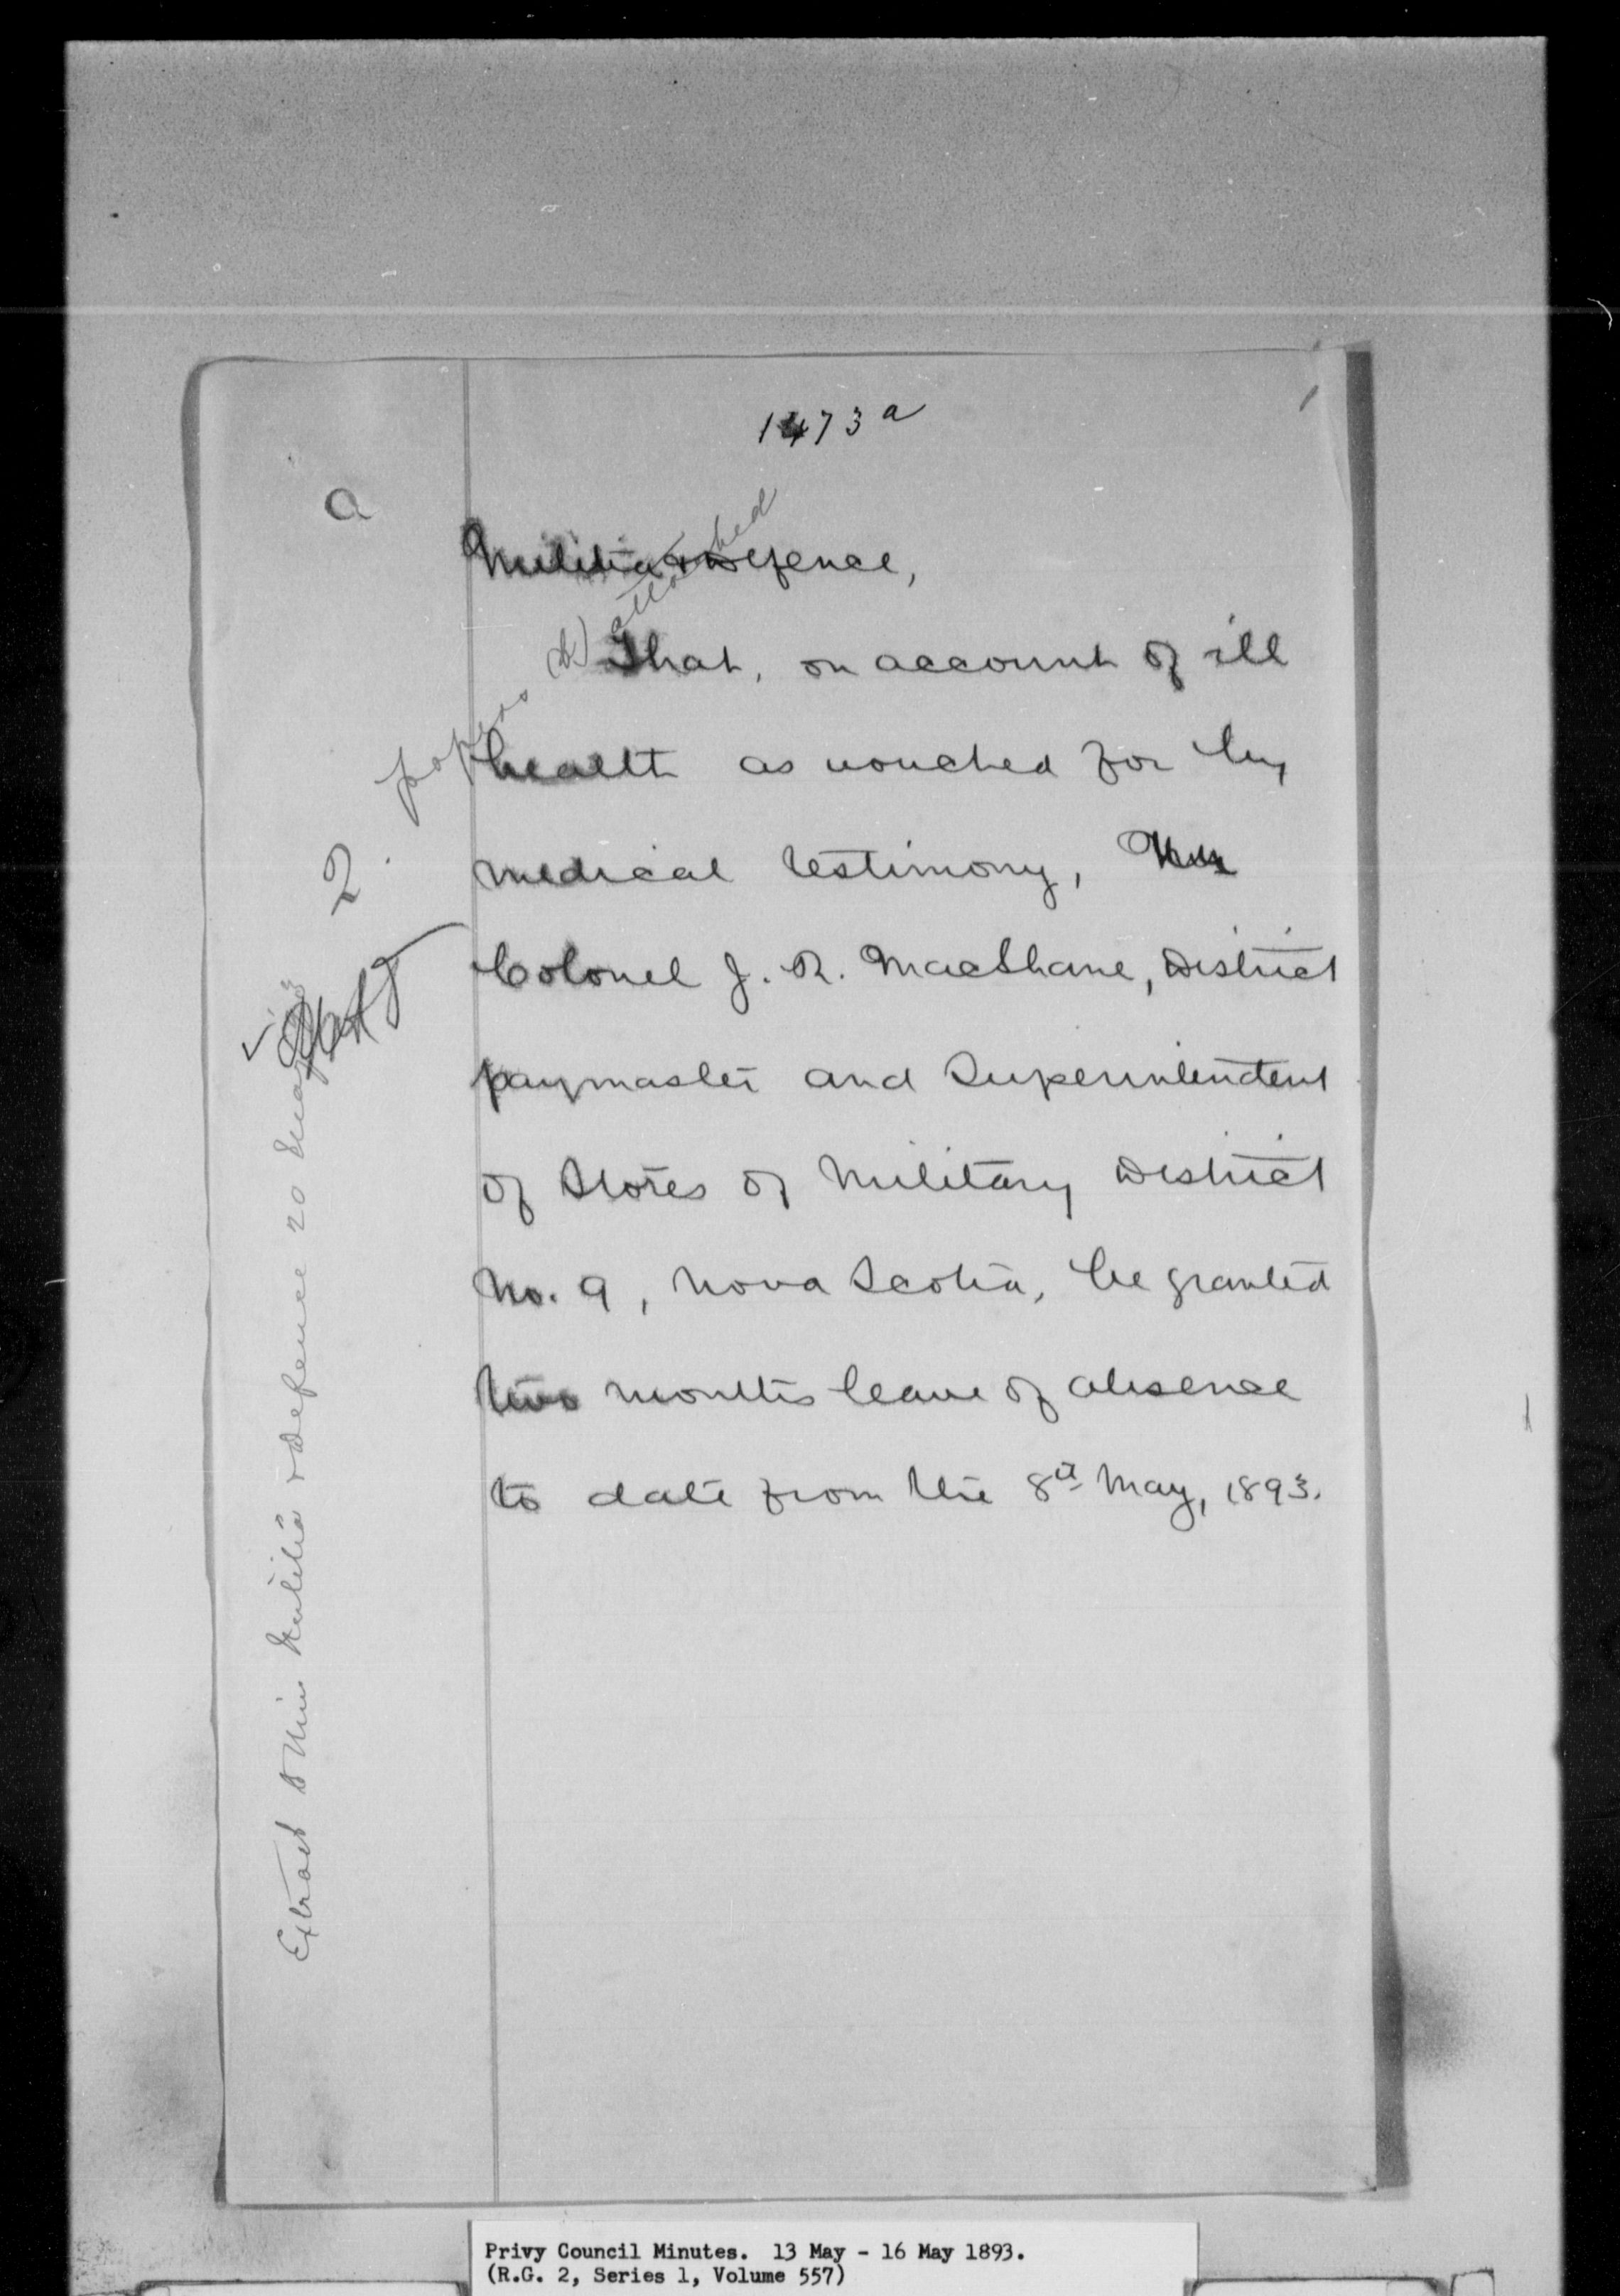 1473 a
a
Militia & Defence,
That, on account of ill
health as vouched for by
medical testimony,
Colonel J. R. MacShane, District
paymaster and Superintendent
of Stores of Military District
No. 9, Nova Scotia, be granted
two months leave of absence
to date from the 8th May, 1893.
2. papers attached
Extract Min Militia & Defence 20 May '93
Privy Council Minutes. 13 May - 16 May 1893.
(R.G. 2, Series 1, Volume 557)